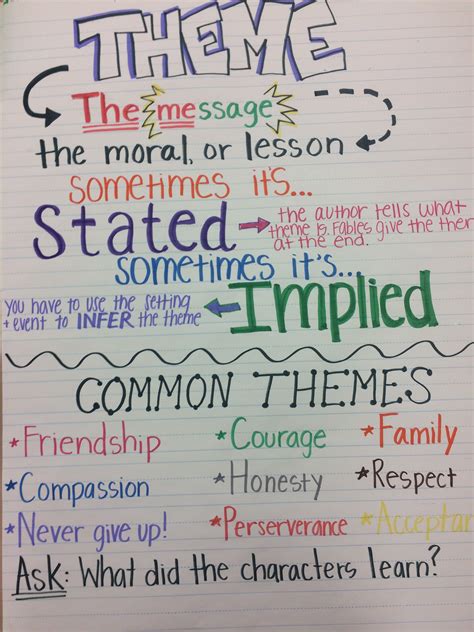 THEME
The message
the moral, or lesson
sometimes it's...
Stated → the author tells what
theme is. Fables give the ther
at the end.
sometimes it's...
Implied
you have to use the setting
+ event to INFER the theme
COMMON THEMES
*Friendship *Courage *Family
*Compassion *Honesty *Respect
*Never give up! *Perserverance *Acceptan
Ask: What did the characters learn?